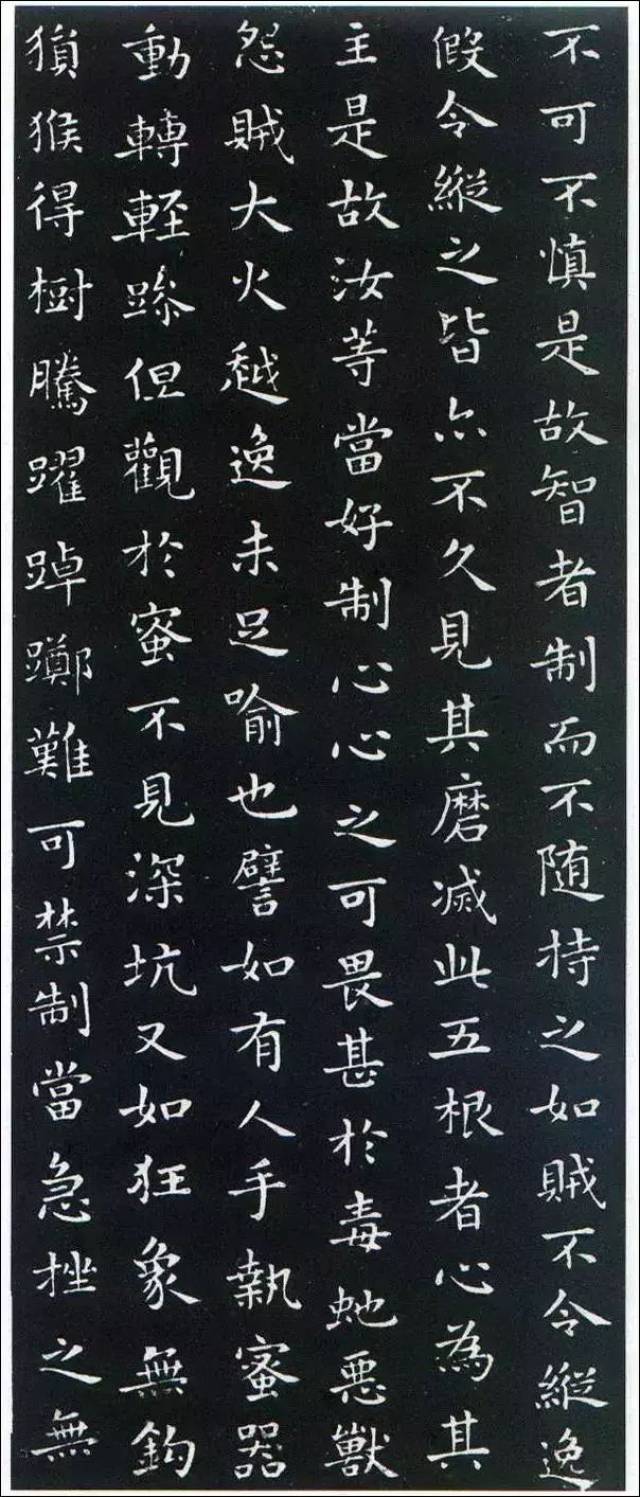 不可不慎是故智者制而不随持之如賊不令縱逸
假令縱之皆亦不久見其磨滅此五根者心為其
主是故汝等當好制心心之可畏甚於毒虵悪獸
怨賊大火越逸未足喻也譬如有人手執蜜器
動轉輕躁但觀於蜜不見深坑又如狂象無鈎
猨猴得樹騰躍踔躑難可禁制當急挫之無